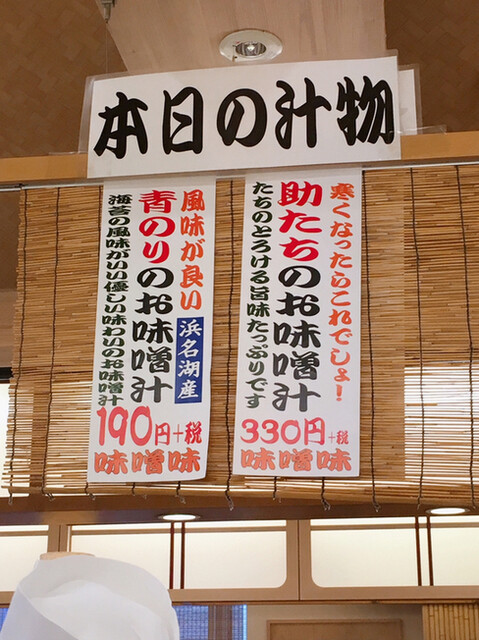 本日の汁物
寒くなったらこれでしょ!
助たちのお味噌汁
たちのとろける旨味たっぷりです
330円+税
味噌味
風味が良い
浜名湖産
青のりのお味噌汁
海苔の風味がいい優しい味わいのお味噌汁
190円+税
味噌味